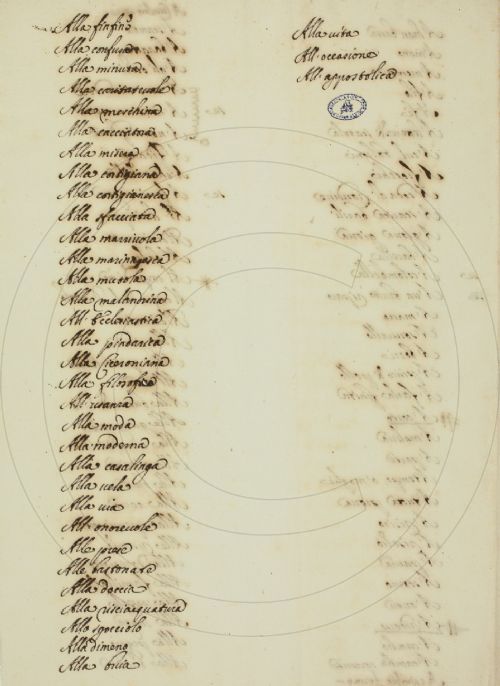 Alla finfino
Alla confusa
Alla minuta
Alla caritatevole
Alla meschina
Alla cacciatora
Alla misera
Alla cortigiana
Alla cortigianesca
Alla sfacciata
Alla marrivola
Alla marinaresca
Alla mutola
Alla malandrina
All' Ecclesiastica
Alla pindarica
Alla Ciceroniana
Alla filosofica
All' usanza
Alla moda
Alla moderna
Alla casalinga
Alla vela
Alla via
All' onorevole
Alle prese
Alle bastonate
Alla doccia
Alla risciacquatura
Allo spocciolo
Alla dimeno
Alla bria
Alla vita
All' occasione
All' appostolica